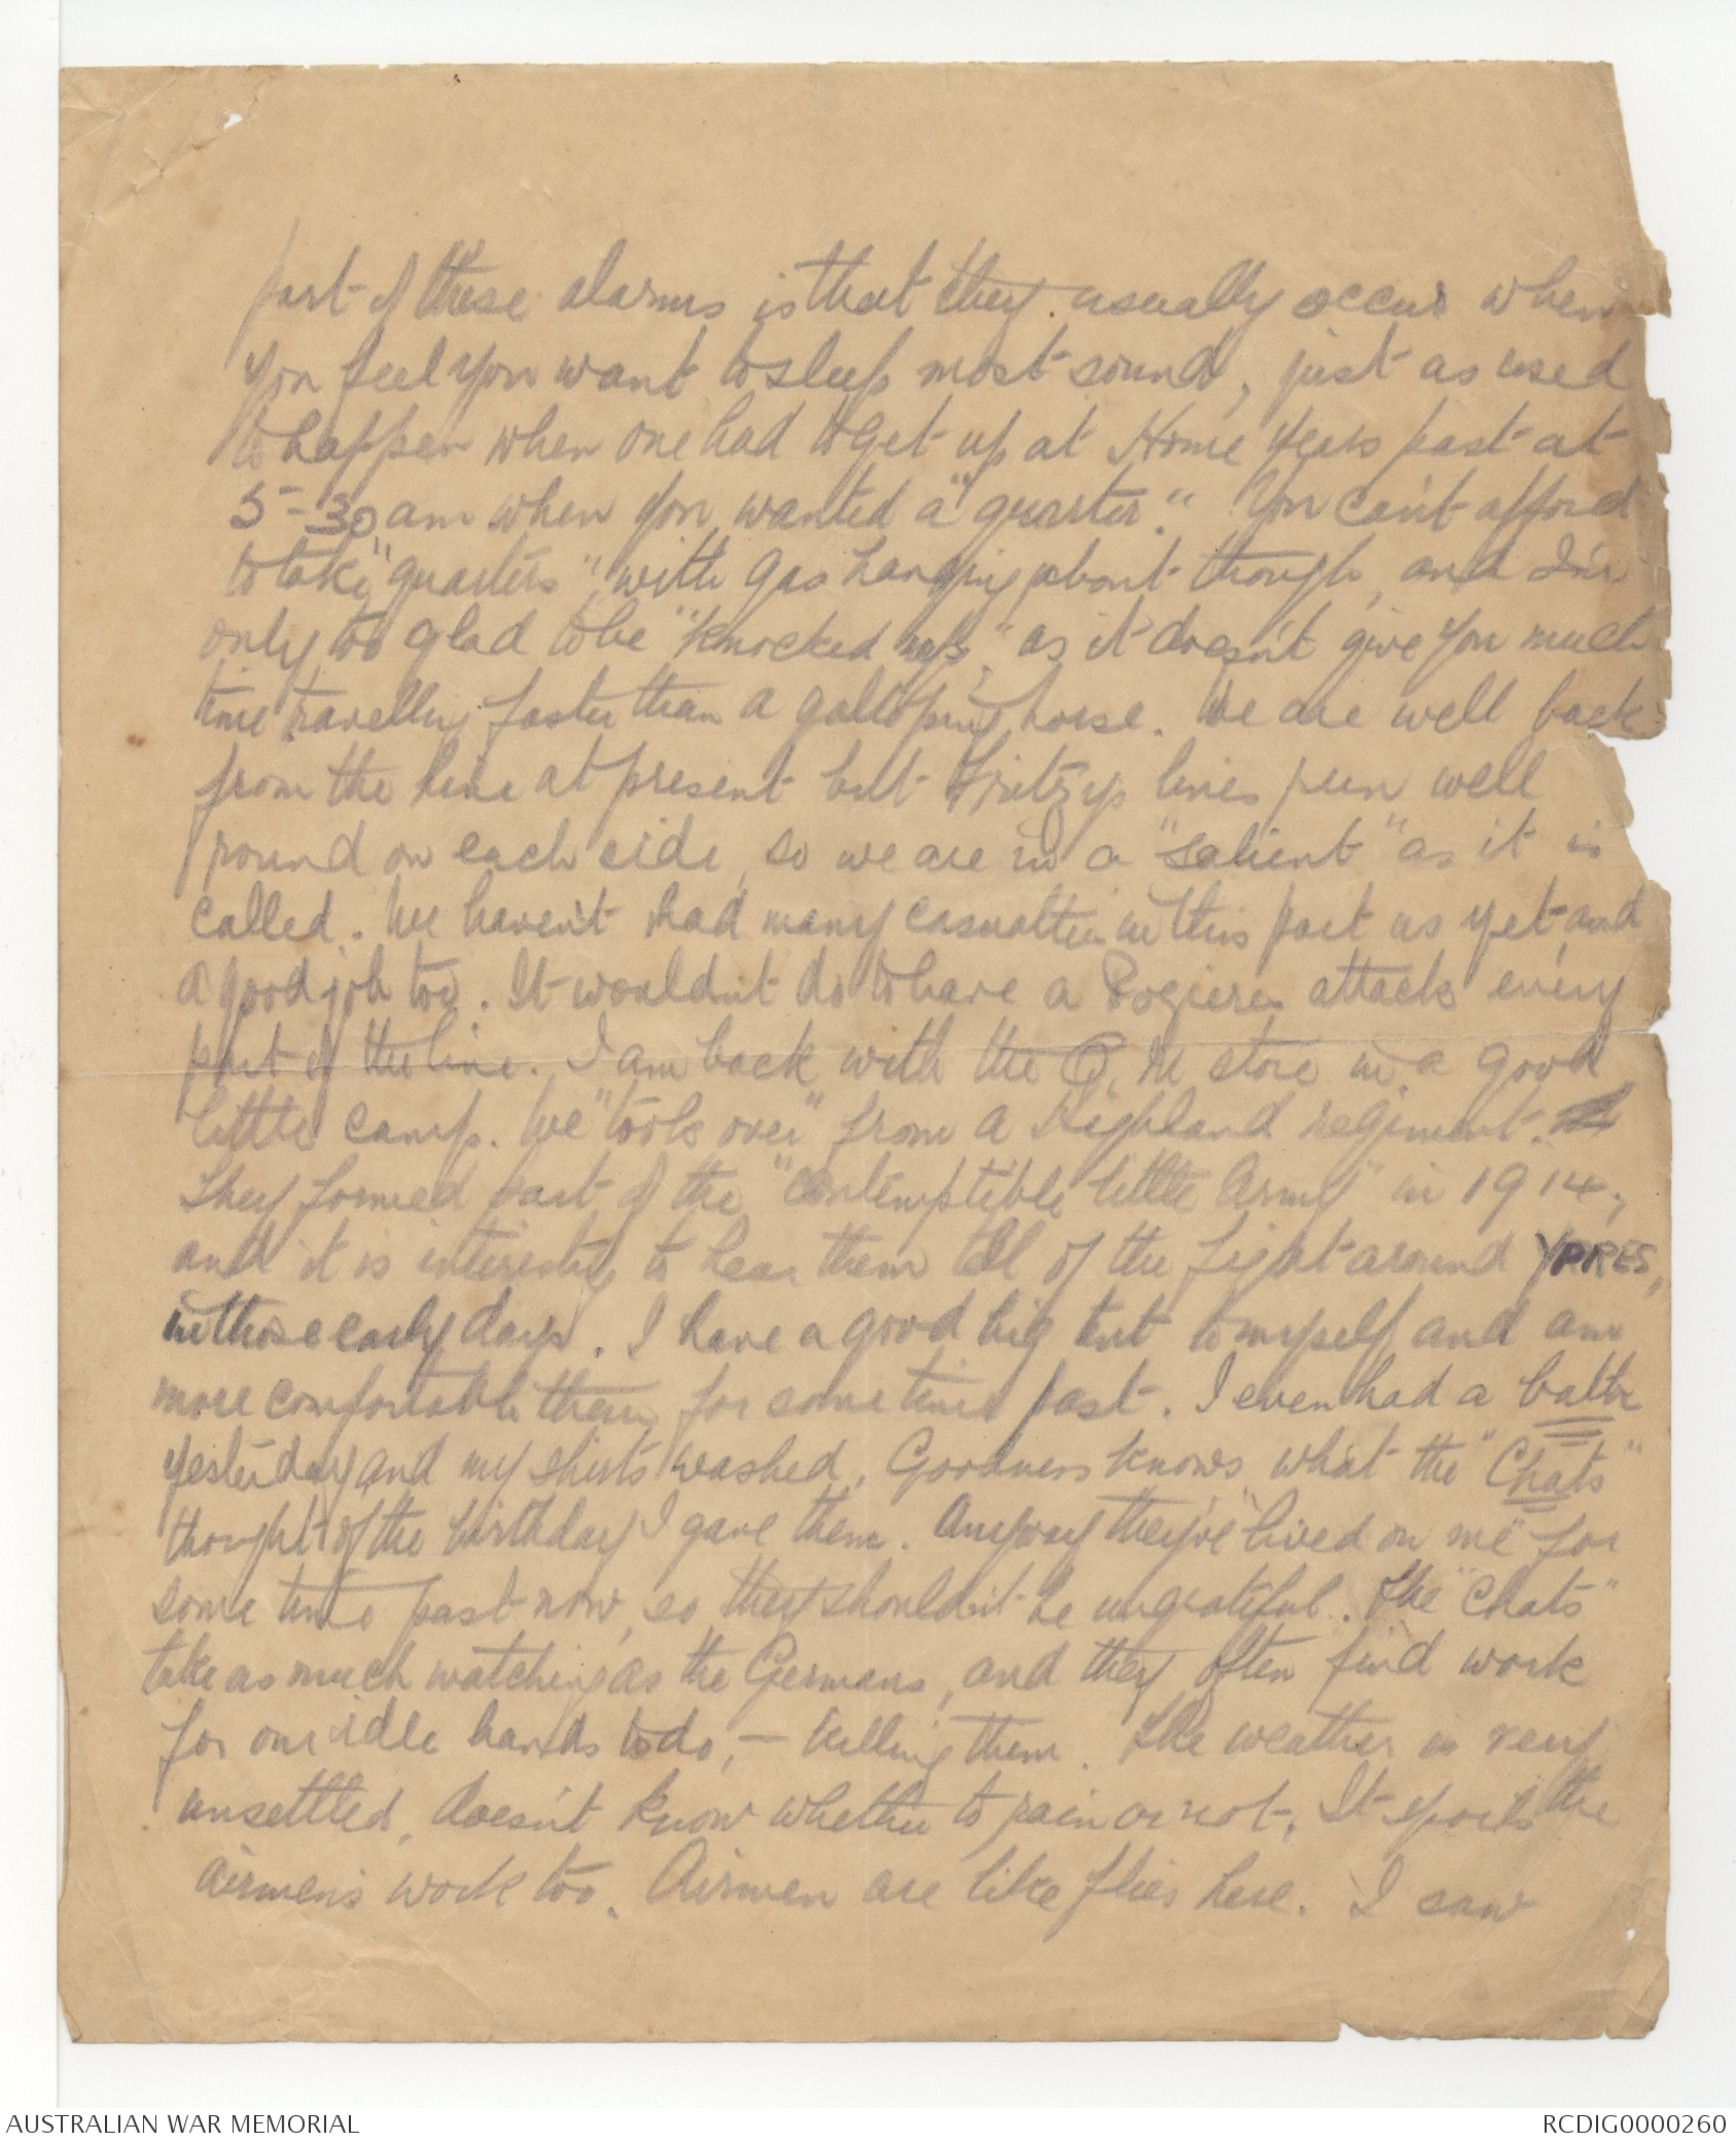 part of these alarms is that they usually occur when
you feel you want to sleep most sound, just as used
to happen when one had to get up at Home years past at
5-30 am when you wanted a "quarter". You can't afford
to take "quarters" with gas hanging about though, and I'm
only too glad to be "knocked up" as it doesn't give you much
time travelling faster than a galloping horse. We are well back
from the line at present but Fritzys lines run well
round on each side, so we are in a "salient" as it is
called. We haven't had many casualties in this part as yet and
a good job too. It wouldn't do to have a Pozieres attack every
part of the line. I am back with the Q.M store in a good
little camp. We "took over" from a Highland regiment.
They formed part of the "Contemptible little Army" in 1914,
and it is interesting to hear them tell of the fight around YPRES,
in those early days. I have a good big tent to myself and am
more comfortable than for some time past. I even had a bath
yesterday and my shirts washed. Goodness knows what the "Chats"
thought of the birthday I gave them. Anyway they've "lived on me" for
some time past now, so they shouldn't be ungrateful. The "Chats"
take as much watching as the Germans, and they often find work
for our idle hands to do, - killing them. The weather is very
unsettled, doesn't know whether to rain or not. It spoils the
airmen's work too. Airmen are like flies here. I saw
AUSTRALIAN WAR MEMORIAL
RCDIG0000260